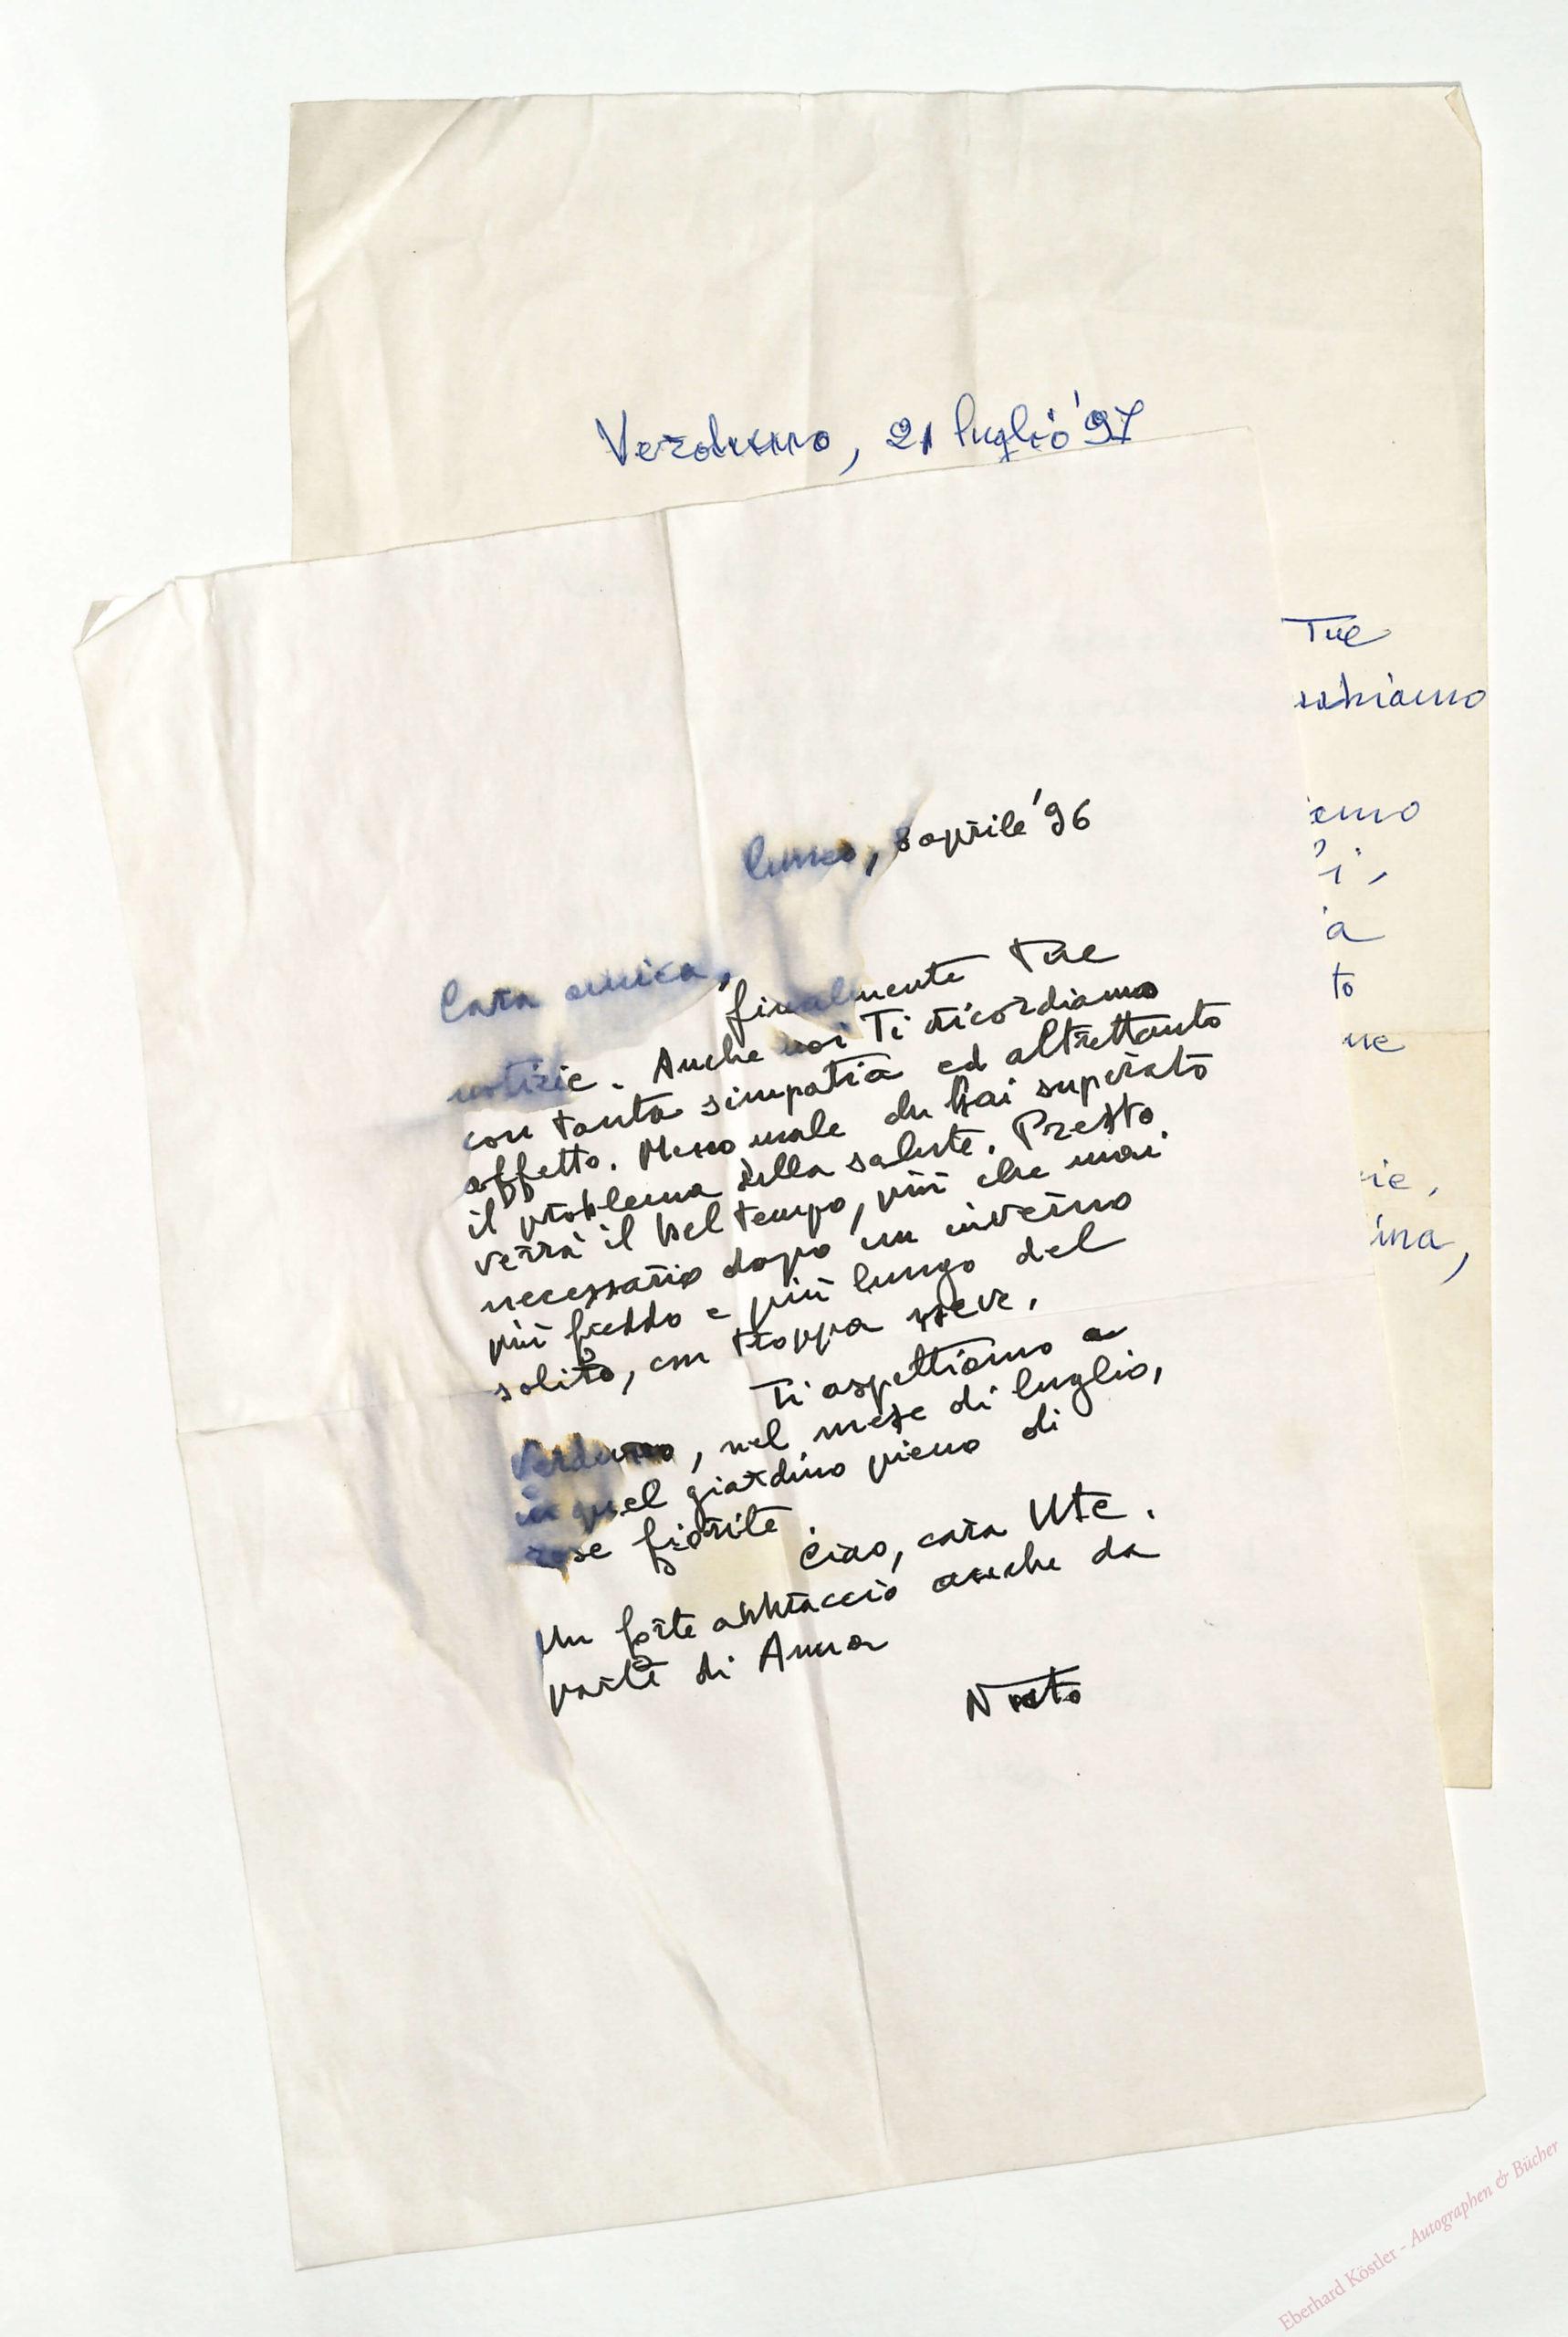 Verduno, 21 luglio '97
Tue
emo
a
to
ne
Cuneo, 8 aprile '96
Cara amica,
finalmente Tue
notizie. Anche noi Ti ricordiamo
con tanta simpatia ed altrettanto
affetto. Meno male che hai superato
il problema della salute. Presto
verrà il bel tempo, più che mai
necessario dopo un inverno
più freddo e più lungo del
solito, con troppa neve.
Ti aspettiamo a
Verduno, nel mese di luglio,
in quel giardino pieno di
rose fiorite.
Ciao, cara Ute.
Un forte abbraccio anche da
parte di Anna
Nuto
Eberhard Köstler - Autographen & Bücher